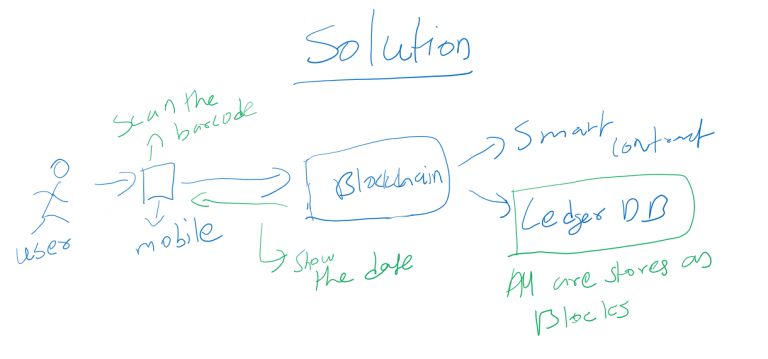 Solution
Scan the
barcode
user
mobile
Blockchain
Show
the date
Smart
contract
Ledger DB
All are stores as
Blocks